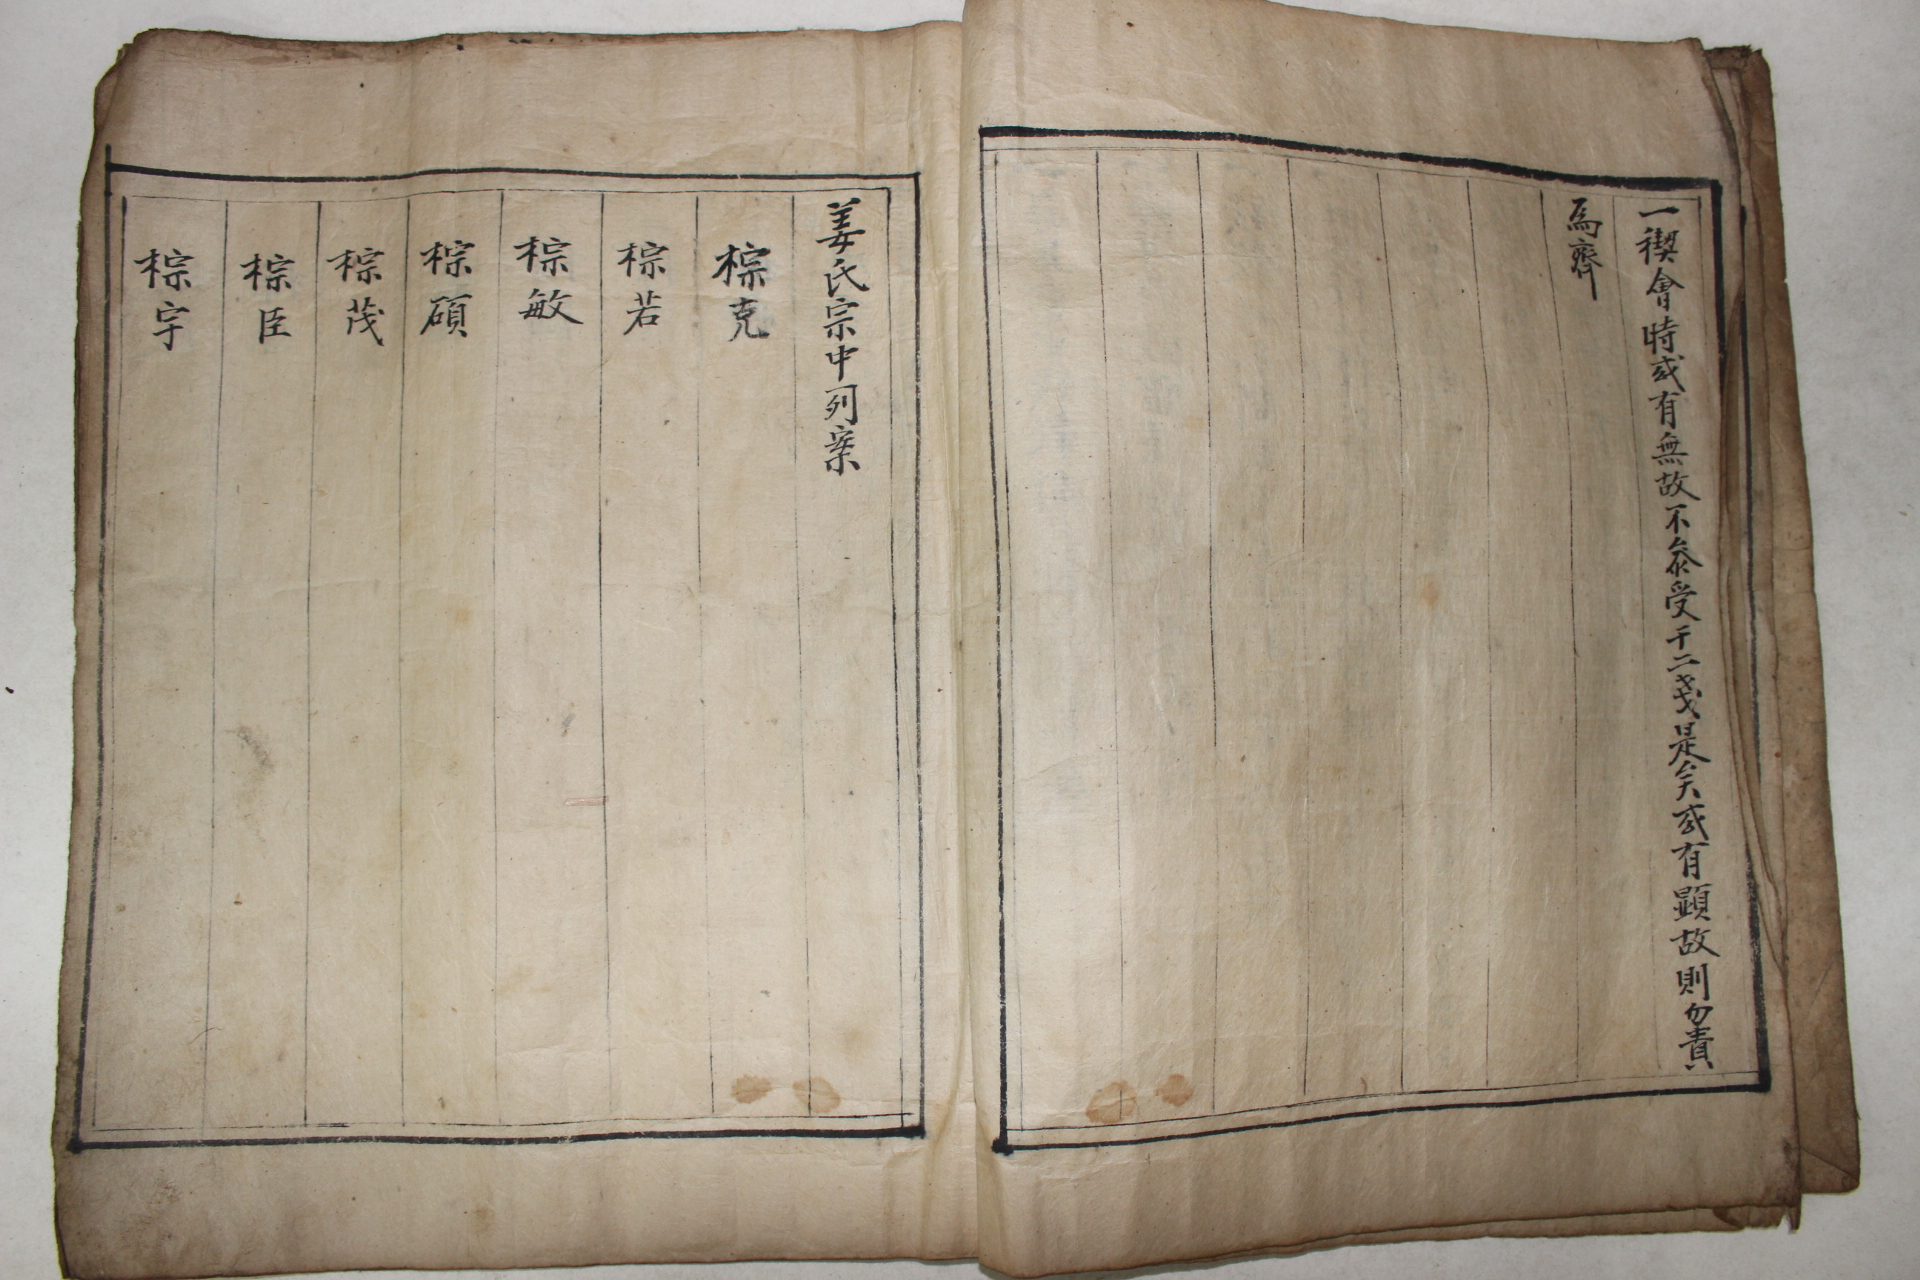 一稧會時或有無故不叅受干二戔是矣或有顕故則勿責
爲齊
姜氏宗中列案
棕克
棕若
棕敏
棕碩
棕茂
棕臣
棕宇